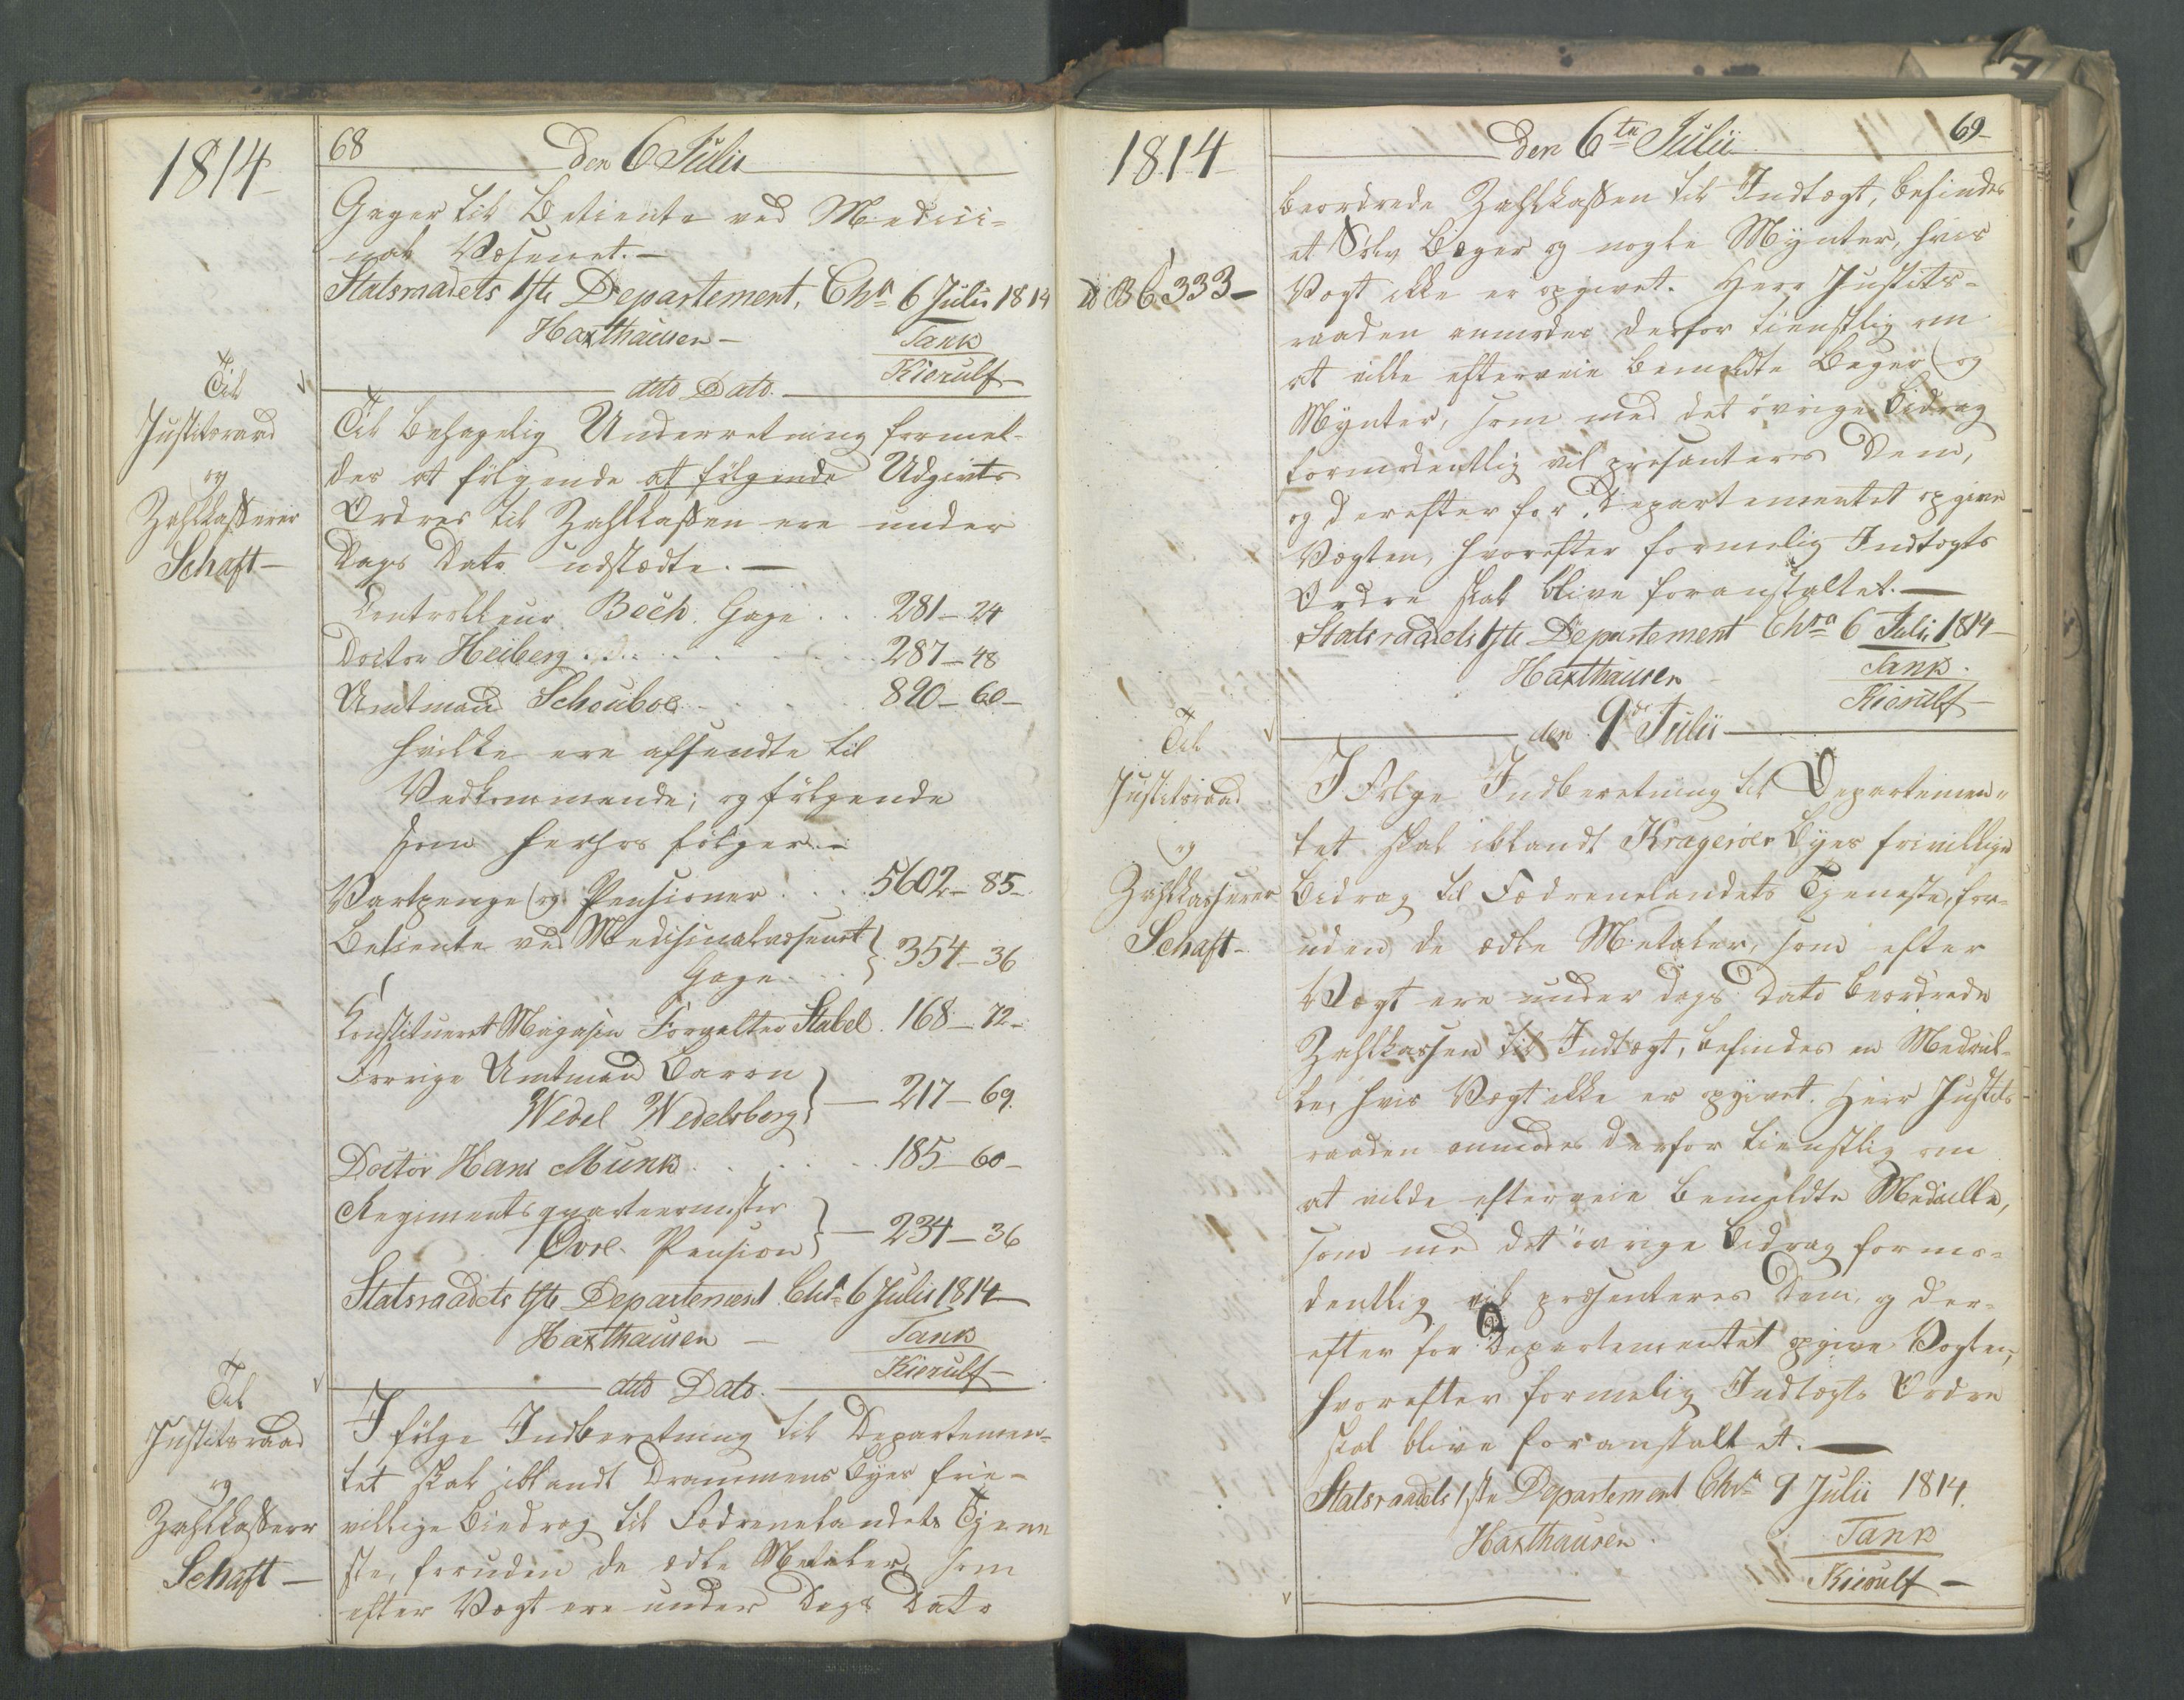 1814
68
den 6 Julii
Gager til Betiente ved Medici-
nal Væsenet. —
Statsraadets 1ste Departement, Chra 6 Julii 1814
Haxthausen —
Tank
Kierulf —
dito Dato.
Til
Justitsraad
og
Zahlkasserer
Schaft —
Til behagelig Underretning formel-
des at følgende at følgende Udgivts
Ordres til Zahlkassen ere under
Dags Dato udstædte. —
Controlleur Bech. Gage . . 281 — 24
Doctor Heiberg . d° . . . . . 287 — 48
Amtmand Schouboe . . . . 820 — 60 —
hvilke ere afsendte til
Vedkommende; og følgende
som herhos følger. —
Vartpenge og Pensioner . . . 5602 — 85 —
Betiente ved Medisinalvæsenet
Gage . . . } 354 — 36
Constitueret Magasin Forvalter Stabel . 168 — 72 —
Forrige Amtmand Baron
Wedel Wedelsborg } — 217 — 69.
Doctor Hans Munk . . . . . 185 — 60 —
Regimentsqvarteermester
Ovre. Pension } — 234 — 36
Statsraadets 1ste Departement Chra 6 Julii 1814 —
Haxthausen —
Tank
Kierulf —
dito Dato.
Til
Justitsraad
og
Zahlkasserer
Schaft —
I følge Indberetning til Departemen-
tet skal iblandt Drammens Byes frie-
villige Biedrag til Fædrenelandets Tjene
ste, foruden de ædle Metaler, som
efter Vægt ere under Dags Dato
1814
den 6te Julii
69 —
B 6333 —
beordrede Zahlkassen til Indtægt, befindes
et Sølv Bæger og nogle Mynter, hvis
Vægt ikke er opgivet. Herr Justits-
raaden anmodes derfor tienstlig om
at ville efterveie bemeldte Bæger og
Mynter, som med det øvrige Bidrag
formodentlig vil præsenteres Dem,
og derefter for Departementet opgive
Vægten, hvorefter formelig Indtægts
Ordre skal blive foranstaltet. —
Statsraadets 1ste Departement Chra 6 Julii 1814 —
Haxthausen
Tank.
Kierulf —
den 9de Julii
Til
Justitsraad
og
Zahlkasserer
Schaft —
I Følge Indberetning til Departemen-
tet skal iblandt Kragerøes Byes frivillige
Bidrag til Fædrenelandets Tjeneste, for-
uden de ædle Metaler, som efter
Vægt ere under dags Dato beordrede
Zahlkassen til Indtægt, befindes en Medail-
le, hvis Vægt ikke er opgivet. Herr Justits
raaden anmodes derfor tienstlig om
at vilde efterveie bemeldte Medaille,
som med det øvrige Bidrag formo-
dentlig vil præsenteres Dem, og der-
efter for Departementet opgive Vægten,
hvorefter formelig Indtægts Ordre
skal blive foranstaltet. —
Statsraadets 1ste Departement Chra 9 Julii 1814.
Haxthausen.
Tank
Kierulf —